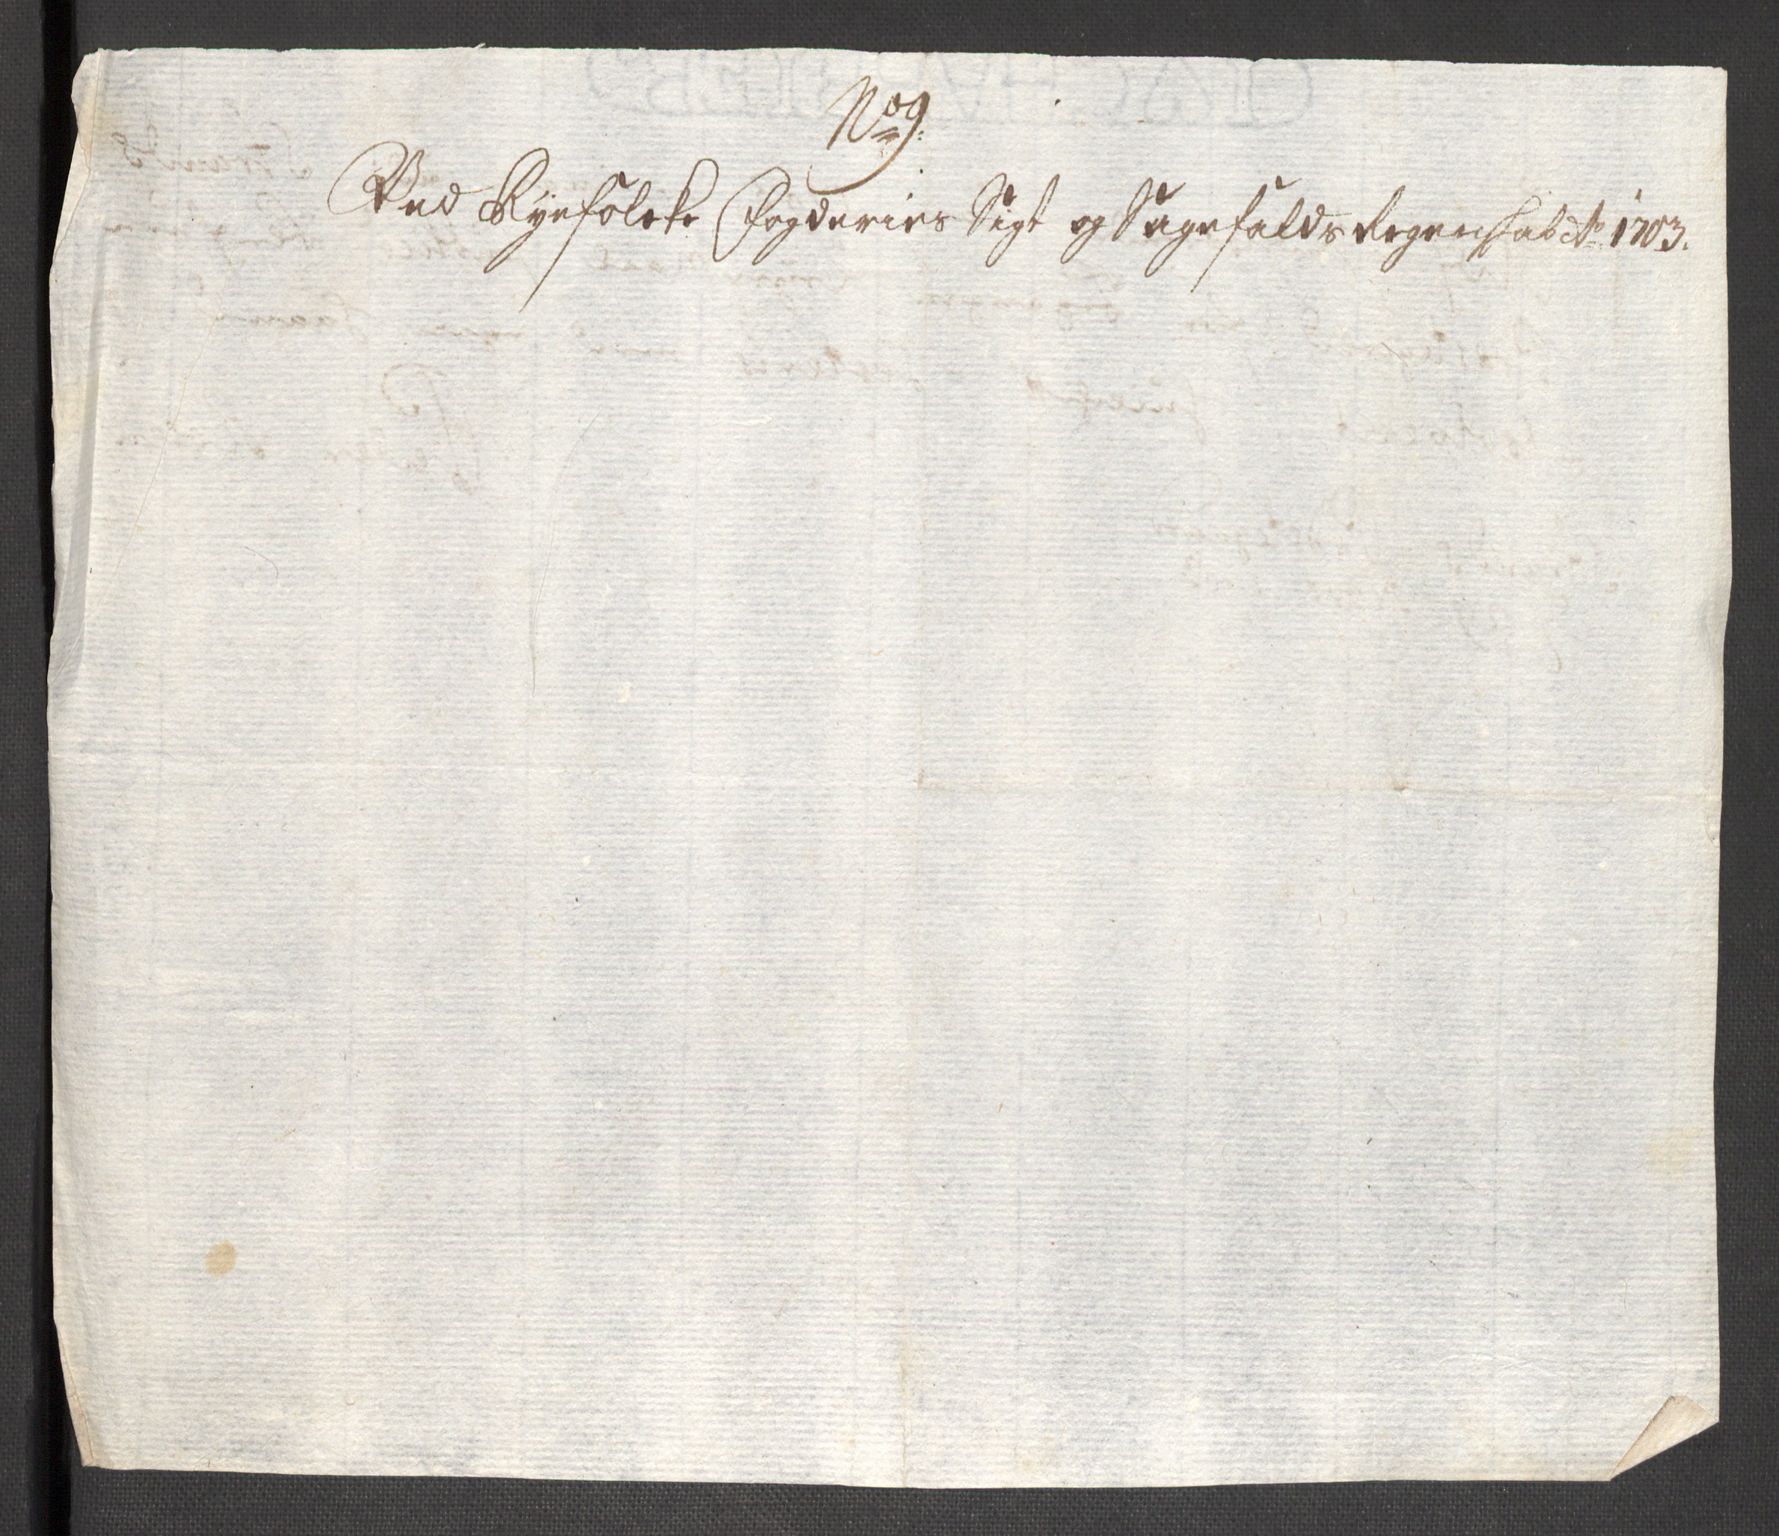 No 9.
Ved Ryefölcke Fogderies Sigt og Sagefalds Regenskab Ao 1703.